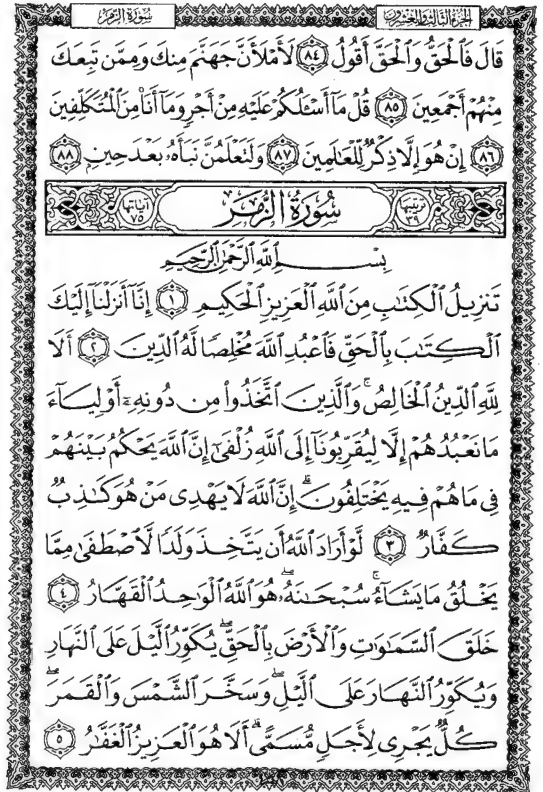 الجزء الثالث والعشرون
سورة الزمر
قَالَ فَٱلْحَقُّ وَٱلْحَقَّ أَقُولُ ٨٤ لَأَمْلَأَنَّ جَهَنَّمَ مِنكَ وَمِمَّن تَبِعَكَ
مِنْهُمْ أَجْمَعِينَ ٨٥ قُلْ مَآ أَسْـَٔلُكُمْ عَلَيْهِ مِنْ أَجْرٍ وَمَآ أَنَا۠ مِنَ ٱلْمُتَكَلِّفِينَ
٨٦ إِنْ هُوَ إِلَّا ذِكْرٌ لِّلْعَٰلَمِينَ ٨٧ وَلَتَعْلَمُنَّ نَبَأَهُۥ بَعْدَ حِينِۭ ٨٨
ترتيبها ٣٩
سُورَةُ الزُّمَرِ
آياتها ٧٥
بِسْمِ ٱللَّهِ ٱلرَّحْمَٰنِ ٱلرَّحِيمِ
تَنزِيلُ ٱلْكِتَٰبِ مِنَ ٱللَّهِ ٱلْعَزِيزِ ٱلْحَكِيمِ ١ إِنَّآ أَنزَلْنَآ إِلَيْكَ
ٱلْكِتَٰبَ بِٱلْحَقِّ فَٱعْبُدِ ٱللَّهَ مُخْلِصًا لَّهُ ٱلدِّينَ ٢ أَلَا
لِلَّهِ ٱلدِّينُ ٱلْخَالِصُ ۚ وَٱلَّذِينَ ٱتَّخَذُوا۟ مِن دُونِهِۦٓ أَوْلِيَآءَ
مَا نَعْبُدُهُمْ إِلَّا لِيُقَرِّبُونَآ إِلَى ٱللَّهِ زُلْفَىٰٓ إِنَّ ٱللَّهَ يَحْكُمُ بَيْنَهُمْ
فِى مَا هُمْ فِيهِ يَخْتَلِفُونَ ۗ إِنَّ ٱللَّهَ لَا يَهْدِى مَنْ هُوَ كَٰذِبٌ
كَفَّارٌ ٣ لَّوْ أَرَادَ ٱللَّهُ أَن يَتَّخِذَ وَلَدًا لَّٱصْطَفَىٰ مِمَّا
يَخْلُقُ مَا يَشَآءُ ۚ سُبْحَٰنَهُۥ ۖ هُوَ ٱللَّهُ ٱلْوَٰحِدُ ٱلْقَهَّارُ ٤
خَلَقَ ٱلسَّمَٰوَٰتِ وَٱلْأَرْضَ بِٱلْحَقِّ ۖ يُكَوِّرُ ٱلَّيْلَ عَلَى ٱلنَّهَارِ
وَيُكَوِّرُ ٱلنَّهَارَ عَلَى ٱلَّيْلِ ۖ وَسَخَّرَ ٱلشَّمْسَ وَٱلْقَمَرَ ۖ
كُلٌّ يَجْرِى لِأَجَلٍ مُّسَمًّى ۗ أَلَا هُوَ ٱلْعَزِيزُ ٱلْغَفَّٰرُ ٥